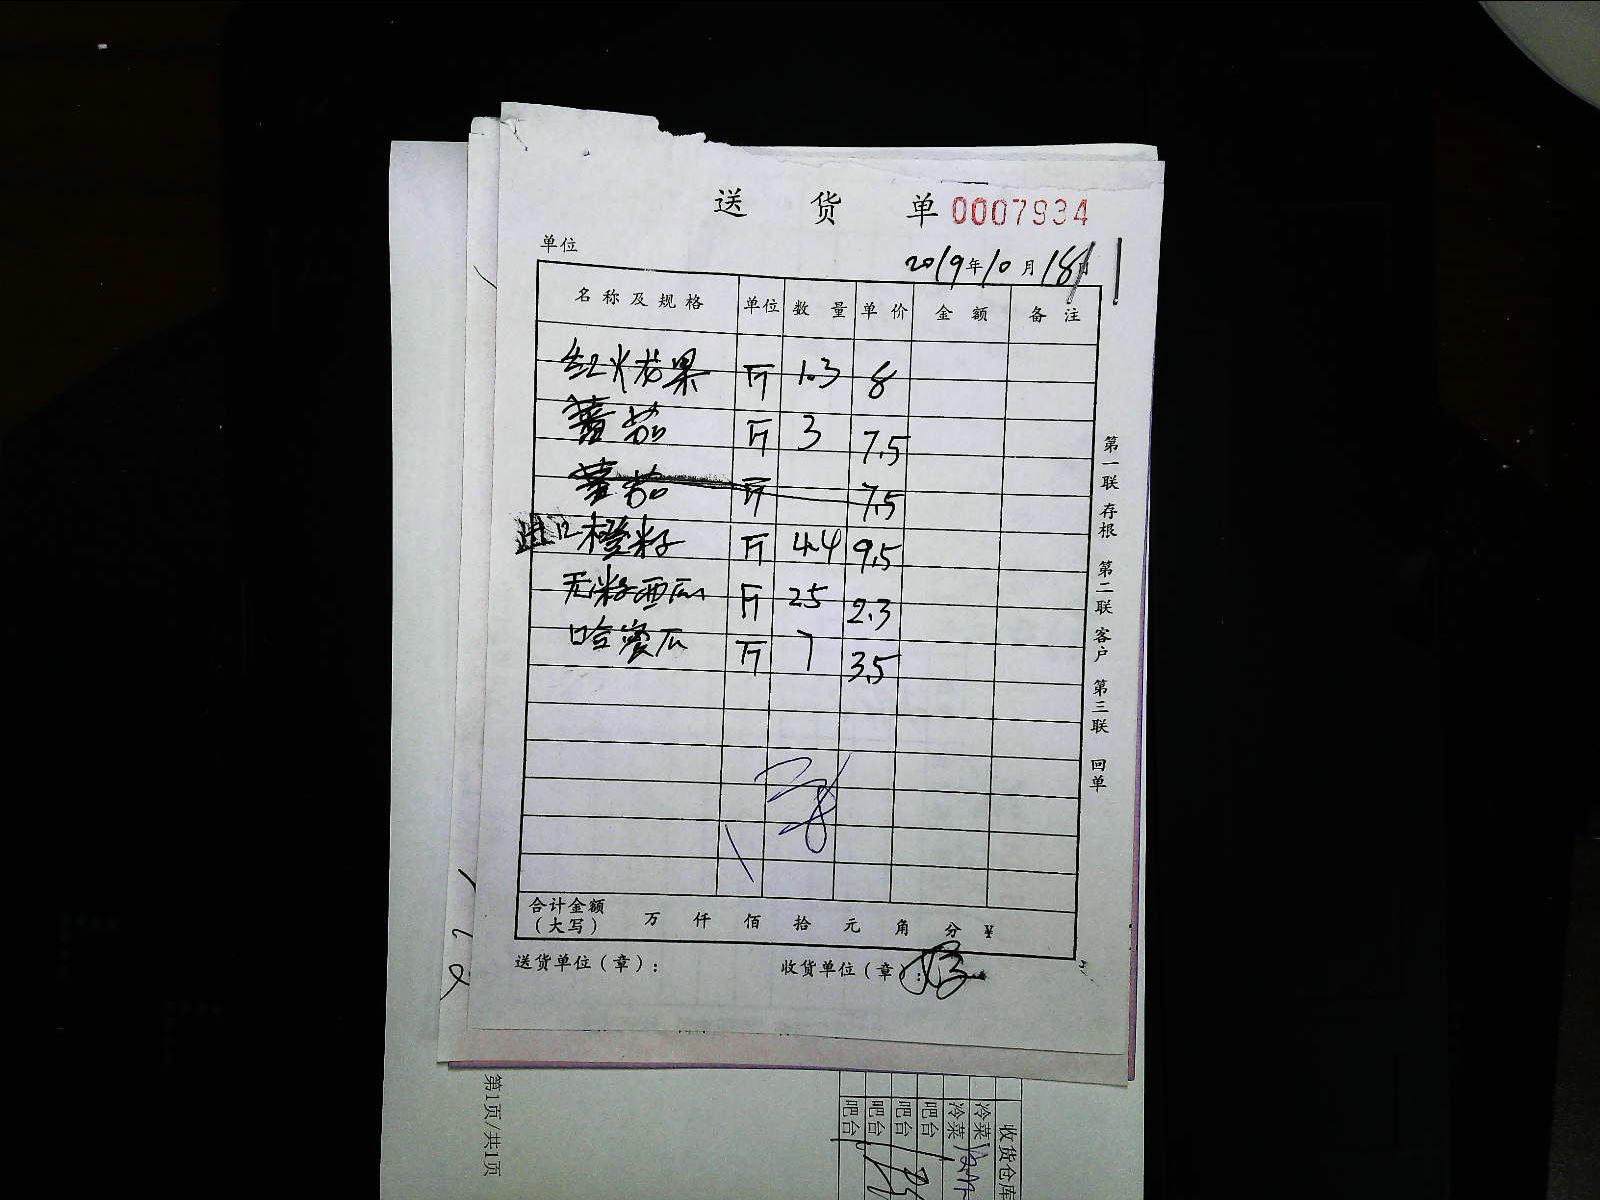 送 货 单 0007934
单位
2019年10月18日
名称及规格 单位 数量 单价 金额 备注
红火龙果 斤 1.3 8
蕃茄 斤 3 7.5
蕃茄 斤 7.5
进口橙籽 斤 4.4 9.5
无籽西瓜 斤 25 2.3
哈蜜瓜 斤 7 3.5
合计金额
(大写) 万 仟 佰 拾 元 角 分 ¥
送货单位(章): 收货单位(章):
第一联 存根 第二联 客户 第三联 回单
第1页/共1页
收货仓库
冷菜
冷菜
吧台
吧台
吧台
吧台